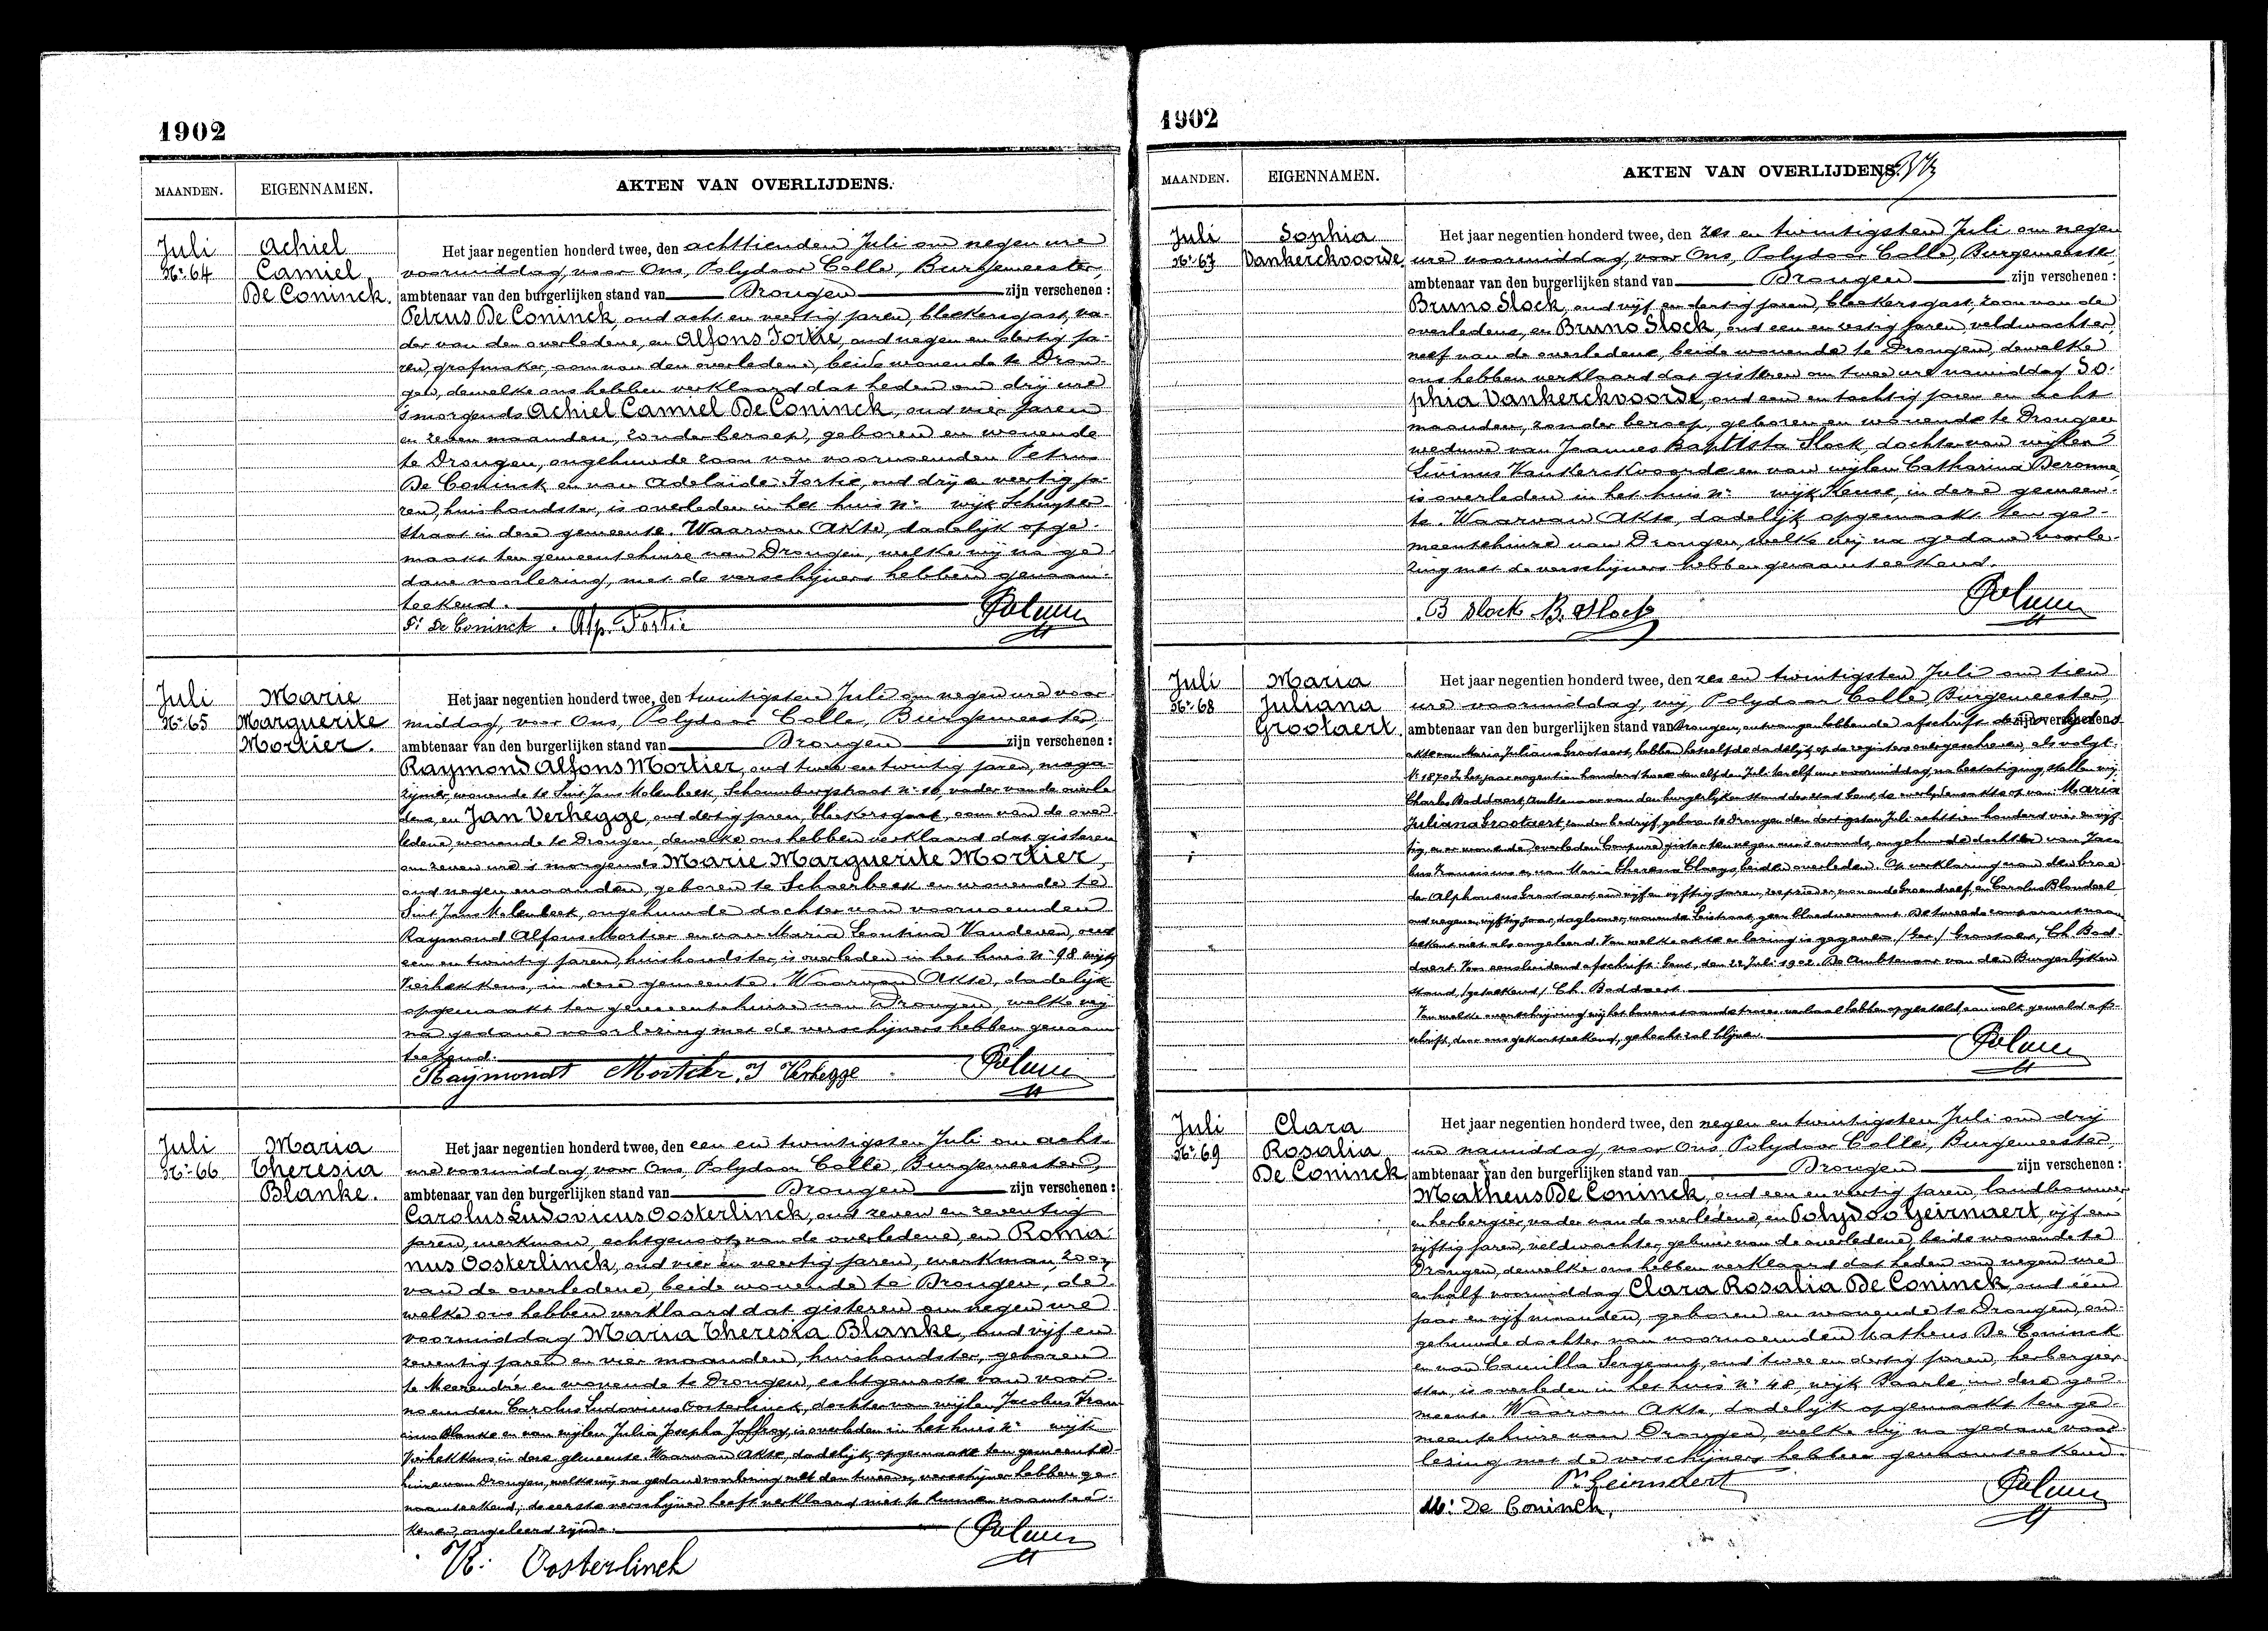 1902
MAANDEN.
EIGENNAMEN.
AKTEN VAN OVERLIJDENS.
Juli
N.r 64
Achiel
Camiel
De Coninck.
Het jaar negentien honderd twee, den achttienden Juli om negen ure
voormiddag, voor Ons, Polydoor Colle, Burgemeester,
ambtenaar van den burgerlijken stand van Drongen zijn verschenen :
Petrus De Coninck, oud acht en veertig jaren, bleekersgast, va-
der van den overledene, en Alfons Fortie, oud negen en dertig ja-
ren, grafmaker, oom van den overledene, beide wonende te Dron-
gen, dewelke ons hebben verklaard dat heden om drij ure
's morgends Achiel Camiel De Coninck, oud vier jaren
en zeven maanden, zonder beroep, geboren en wonende
te Drongen, ongehuwde zoon van voornoemden Petrus
De Coninck en van Adelaide Fortie, oud drij en veertig ja-
ren, huishoudster, is overleden in het huis n.r wijk Schuyter-
straat in deze gemeente. Waarvan Akte, dadelijk opge-
maakt ten gemeentehuize van Drongen, welke wij na ge-
dane voorlezing, met de verschijners hebben genaam-
teekend.
P. De Coninck. Alf. Fortie
Juli
N.r 65
Marie
Marguerite
Mortier.
Het jaar negentien honderd twee, den twintigsten Juli om negen ure voor-
middag, voor Ons, Polydoor Colle, Burgemeester,
ambtenaar van den burgerlijken stand van Drongen zijn verschenen :
Raymond Alfons Mortier, oud twee en twintig jaren, maga-
zijnier, wonende te Sint Jans Molenbeek, Schoumburgstraat n.r 16, vader van de overle-
dene, en Jan Verhegge, oud dertig jaren, bleekersgast, oom van de over-
ledene wonende te Drongen, dewelke ons hebben verklaard dat gisteren
om zeven ure 's morgends Marie Marguerite Mortier,
oud negen maanden, geboren te Schaerbeek en wonende te
Sint Jans Molenbeek, ongehuwde dochter van voornoemden
Raymond Alfons Mortier en van Maria Leontina Vandeven, oud
een en twintig jaren, huishoudster, is overleden in het huis n.r 98 wijk
Vierhekkens, in deze gemeente. Waarvan Akte, dadelijk
opgemaakt ten gemeentehuize van Drongen, welke wij
na gedane voorlezing met de verschijners hebben genaam-
teekend.
Raÿmondt Mortier. J Verhegge
Juli
N.r 66
Maria
Theresia
Blanke.
Het jaar negentien honderd twee, den een en twintigsten Juli om acht
ure voormiddag, voor Ons, Polydoor Colle, Burgemeester,
ambtenaar van den burgerlijken stand van Drongen zijn verschenen :
Carolus Ludovicus Oosterlinck, oud zeven en zeventig
jaren, werkman, echtgenoot van de overledene, en Roma-
nus Oosterlinck, oud vier en veertig jaren, werkman, zoon
van de overledene, beide wonende te Drongen, de-
welke ons hebben verklaard dat gisteren om negen ure
voormiddag Maria Theresia Blanke, oud vijf en
zeventig jaren en vier maanden, huishoudster, geboren
te Meerendré en wonende te Drongen, echtgenoote van voor-
noemden Carolus Ludovicus Oosterlinck, dochter van wijlen Jacobus Fran-
ciscus Blanke en van wijlen Julia Josepha Joffroy, is overleden in het huis n.r wijk
Vierhekkens in deze gemeente. Waarvan Akte, dadelijk opgemaakt ten gemeente-
huize van Drongen, welke wij na gedane voorlezing met den tweeden verschijner hebben ge-
naamteekend, de eerste verschijner heeft verklaard niet te kunnen naamtee-
kenen, ongeleerd zijnde.
R: Oosterlinck
1902
MAANDEN.
EIGENNAMEN.
AKTEN VAN OVERLIJDENS.
Juli
N.r 67
Sophia
Vankerckvoorde.
Het jaar negentien honderd twee, den zes en twintigsten Juli om negen
ure voormiddag, voor Ons, Polydoor Colle, Burgemeester,
ambtenaar van den burgerlijken stand van Drongen zijn verschenen :
Bruno Slock, oud vijf en dertig jaren, bleekersgast, zoon van de
overledene, en Bruno Slock, oud een en zestig jaren, veldwachter,
neef van de overledene, beide wonende te Drongen, dewelke
ons hebben verklaard dat gisteren om twee ure namiddag So-
phia Vankerckvoorde, oud een en tachtig jaren en acht
maanden, zonder beroep, geboren en wonende te Drongen
weduwe van Joannes Baptista Slock, dochter van wijlen
Livinus Vankerckvoorde en van wijlen Catharina Deronne,
is overleden in het huis n.r wijk Keuse, in deze gemeen-
te. Waarvan Akte, dadelijk opgemaakt ten ge-
meentehuize van Drongen, welke wij na gedane voorle-
zing met de verschijners hebben genaamteekend.
B Slock B. Slock
Juli
N.r 68
Maria
Juliana
Grootaert.
Het jaar negentien honderd twee, den zes en twintigsten Juli om tien
ure voormiddag, wij, Polydoor Colle, Burgemeester,
ambtenaar van den burgerlijken stand van Drongen, ontvangen hebbende afschrift der overlijdens
akte van Maria Juliana Grootaert, hebben hetzelfde dadelijk op de registers overgeschreven, als volgt:
N.r 1870. In het jaar negentien honderd twee den elfden Juli ten elf ure voormiddag, na bestatiging, stellen wij,
Charles Boddaert, Ambtenaar van den burgerlijken stand der stad Gent, de overlijdensakte op van Maria
Juliana Grootaert, zonder bedrijf, geboren te Drongen den dertigsten Juli achttien honderd vier en vijf-
tig, er wonende, overleden Coupure gister ten negen ure 's avonds, ongehuwde dochter van Jaco-
bus Franciscus en van Maria Theresia Claeys, beiden overleden. Op verklaring van den broe-
der Alphonsus Grootaert, oud vijf en vijftig jaren, wonende Groendreef, en Carolus Blondeel
oud negen en vijftig jaar, daglooner, wonende Leistraat, geen bloedverwant. De tweede comparant naam-
teekent niet als ongeleerd. Van welke akte er lezing is gegeven. /Get./ Grootaer, Ch. Bod-
daert. Voor eensluidend afschrift: Gent, den 22 Juli 1902. De Ambtenaar van den Burgerlijken
stand, /geteekend/ Ch. Boddaert.
Van welke overschrijving wij het bovenstaande proces verbaal hebben opgesteld, aan welk gemeld af-
schrift, door ons gekantteekend, gehecht zal blijven.
Juli
N.r 69
Clara
Rosalia
De Coninck.
Het jaar negentien honderd twee, den negen en twintigsten Juli om drij
ure namiddag, voor Ons Polydoor Colle, Burgemeester,
ambtenaar van den burgerlijken stand van Drongen zijn verschenen :
Matheus De Coninck, oud een en veertig jaren, landbouwer
en herbergier, vader van de overledene, en Polydoo Geirnaert, vijf en
vijftig jaren, veldwachter, gebuur van de overledene, beide wonende te
Drongen, dewelke ons hebben verklaard dat heden om negen ure
en half voormiddag Clara Rosalia De Coninck, oud één
jaar en vijf maanden, geboren en wonende te Drongen, on-
gehuwde dochter van voornoemden Matheus De Coninck
en van Camilla Sergeant, oud twee en dertig jaren, herbergier-
ster, is overleden in het huis n.r 48, wijk Baarle, in deze ge-
meente. Waarvan Akte, dadelijk opgemaakt ten ge-
meentehuize van Drongen, welke wij na gedane voor-
lezing met de verschijners hebben genaamteekend.
P. Geirnaert
M: De Coninck.